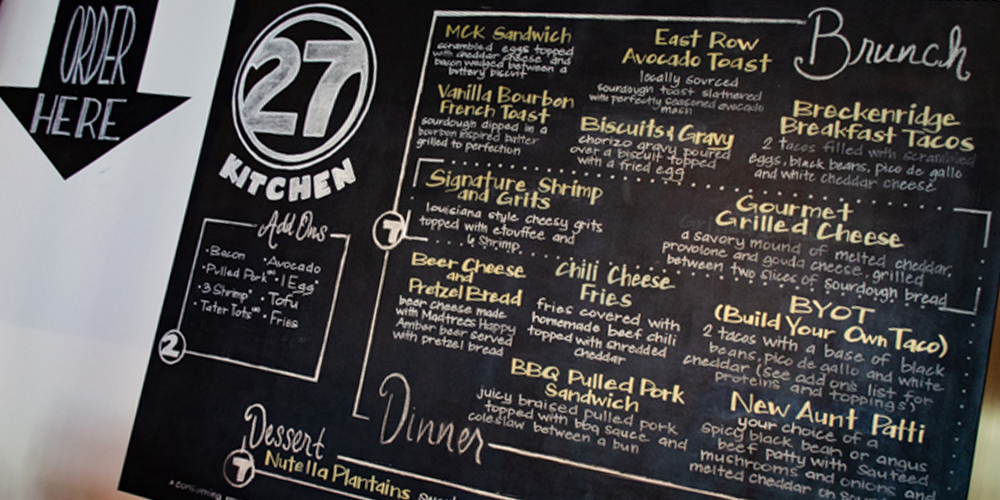 ORDER
HERE
27
KITCHEN
Add Ons
•Bacon •Avocado
•Pulled Pork •1 Egg
•3 Shrimp •Tofu
Tater Tots •Fries
2
Brunch
MCK Sandwich
scrambled eggs topped
with cheddar cheese and
bacon wedged between a
buttery biscuit
East Row
Avocado Toast
locally sourced
sourdough toast slathered
with perfectly seasoned avocado
mash
Vanilla Bourbon
French Toast
sourdough dipped in a
bourbon inspired batter
grilled to perfection
Biscuits & Gravy
chorizo gravy poured
over a biscuit topped
with a fried egg
Breckenridge
Breakfast Tacos
2 tacos filled with scrambled
eggs, black beans, pico de gallo
and white cheddar cheese
Signature Shrimp
and Grits
louisiana style cheesy grits
topped with etouffee and
6 Shrimp
7
Gourmet
Grilled Cheese
a savory mound of melted cheddar,
provolone and gouda cheese, grilled
between two slices of sourdough bread
Beer Cheese
and
Pretzel Bread
beer cheese made
with Madtrees Happy
Amber beer served
with pretzel bread
Chili Cheese
Fries
fries covered with
homemade beef chili
topped with shredded
cheddar
BYOT
(Build Your Own Taco)
2 tacos with a base of black
beans, pico de gallo and white
cheddar (see add ons list for
proteins and toppings)
BBQ Pulled Pork
Sandwich
juicy braised pulled pork
topped with bbq sauce and
coleslaw between a bun
New Aunt Patti
your choice of a
spicy black bean or angus
beef patty with sauteed
mushrooms and onions
melted cheddar on
Dinner
Dessert
7
Nutella Plantains
*consuming